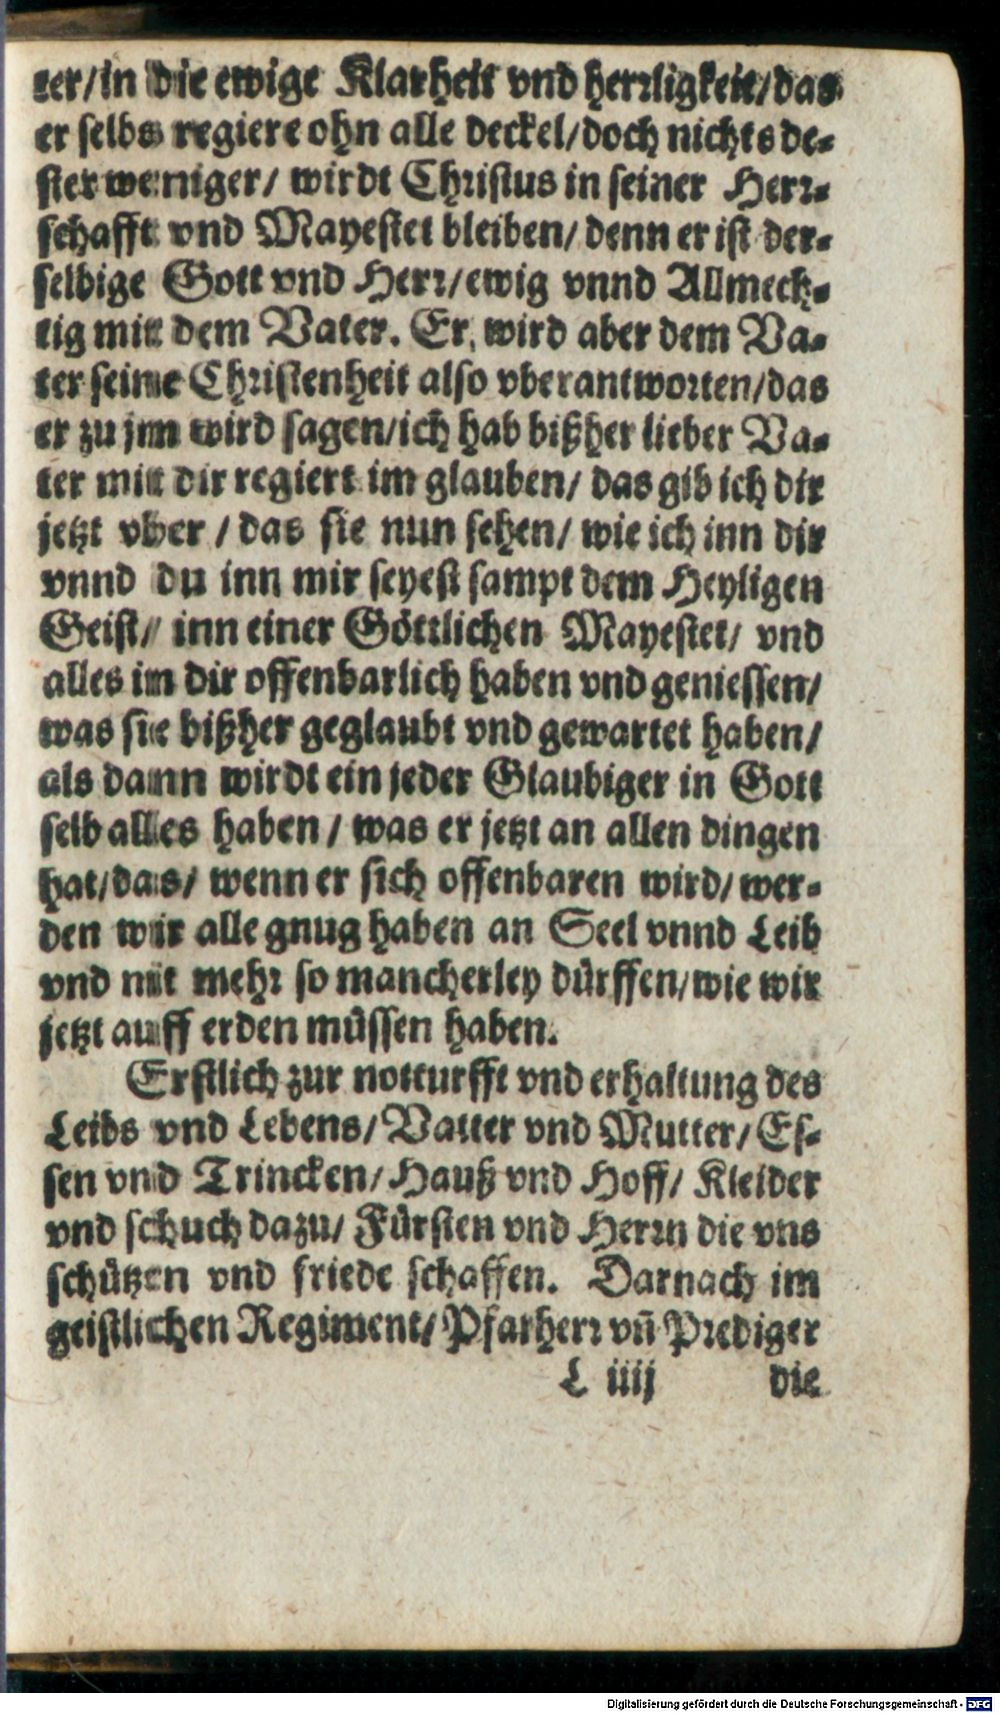 ter/in die ewige Klarheit vnd herrligkeit/das
er selbs regiere ohn alle deckel/doch nichts de-
ster weniger/ wirdt Christus in seiner Herr-
schafft vnd Mayestet bleiben/ denn er ist der-
selbige Gott vnd Herr/ewig vnnd Allmech-
tig mitt dem Vater. Er wird aber dem Va-
ter seine Christenheit also vberantworten/das
er zu jnn wird sagen/ich hab bißher lieber Va-
ter mitt dir regiert im glauben/ das gib ich dir
jetzt vber / das sie nun sehen/ wie ich inn dir
vnnd du inn mir seyest sampt dem Heyligen
Geist/ inn einer Göttlichen Mayestet/ vnd
alles inn dir offenbarlich haben vnd geniessen/
was sie bißher geglaubt vnd gewartet haben/
als dann wirdt ein jeder Glaubiger in Gott
selb alles haben / was er jetzt an allen dingen
hat/das/ wenn er sich offenbaren wird/ wer-
den wir alle gnug haben an Seel vnnd Leib
vnd nit mehr so mancherley dürffen/wie wir
jetzt auff erden müssen haben.
Erstlich zur notturfft vnd erhaltung des
Leibs vnd Lebens/ Vatter vnd Mutter/ Es-
sen vnd Trincken/ Hauß vnd Hoff/ Kleider
vnd schuch dazu/ Fürsten vnd Herrn die vns
schützen vnd friede schaffen. Darnach im
geistlichen Regiment/ Pfarherr vn̄ Prediger
L iiij die
Digitalisierung gefördert durch die Deutsche Forschungsgemeinschaft - DFG